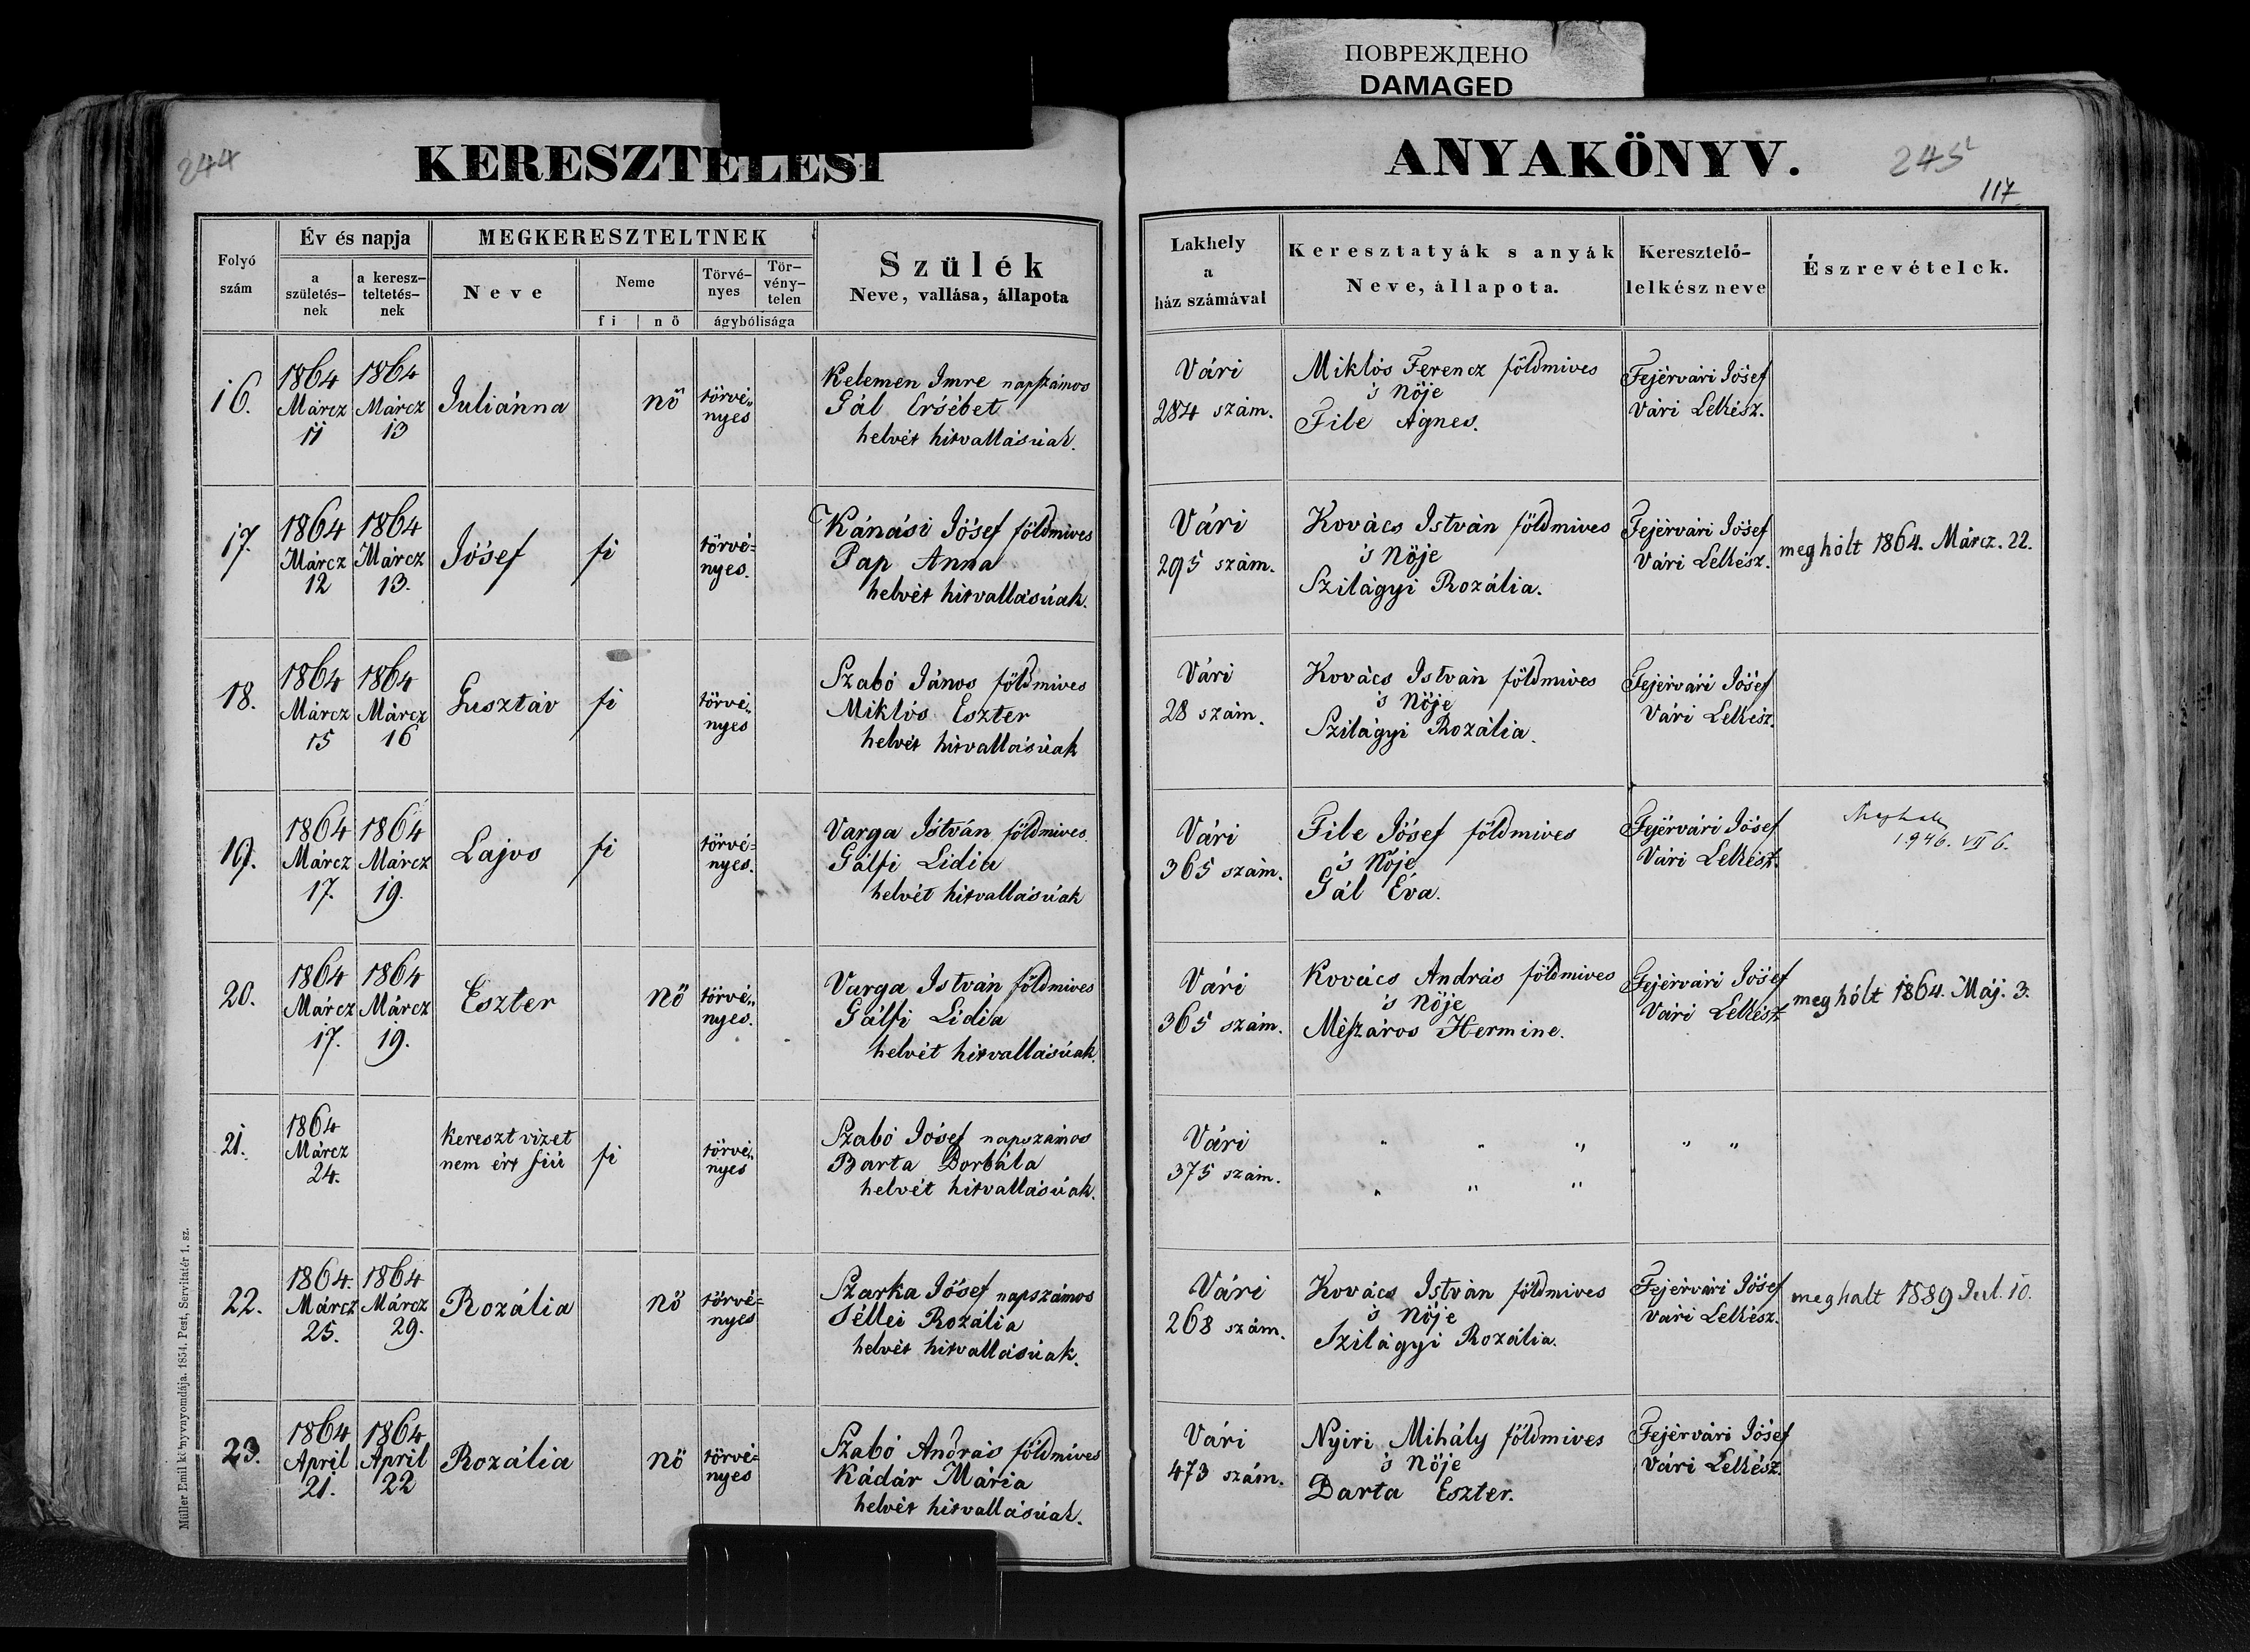 ПОВРЕЖДЕНО
DAMAGED
244
KERESZTELESI
ANYAKÖNYV.
245
117
Folyó
szám
Év és napja
a
születés-
nek
a keresz-
teltetés-
nek
MEGKERESZTELTNEK
Neve
Neme
fi
nö
Törvé-
nyes
Tör-
vény-
telen
ágybólisága
Szülék
Neve, vallása, állapota
Lakhely
a
ház számával
Keresztatyák s anyák
Neve, állapota.
Keresztelő-
lelkész neve
Észrevételek.
16.
1864
Márcz
11
1864
Márcz
13
Juliánna
nö
törvé„
nyes
Kelemen Imre napszámos
Gál Ersébet
helvét hitvallásúak.
Vári
284 szám.
Miklós Ferencz földmives
's Nöje
File Ágnes.
Fejérvári Jósef
Vári Lelkész.
17.
1864
Márcz
12
1864
Márcz
13.
Jósef
fi
törvé=
nyes.
Kánási Jósef földmives
Pap Anna
helvét hitvallásúak.
Vári
295 szám.
Kovács István földmives
's Nöje
Szilágyi Rozália.
Fejérvári Jósef
Vári Lelkész.
meghólt 1864. Márcz. 22.
18.
1864
Márcz
15
1864
Márcz
16
Gusztáv
fi
törvé„
nyes
Szabó János földmives
Miklós Eszter
helvét hitvallásúak
Vári
28 szám.
Kovács István földmives
's Nöje
Szilágyi Rozália.
Fejérvári Jósef
Vári Lelkész.
19.
1864
Márcz
17.
1864
Márcz
19.
Lajos
fi
törvé=
nyes.
Varga István földmives
Gálfi Lidia
helvét hitvallásúak
Vári
365 szám.
File Jósef földmives
's Nöje
Gál Éva.
Fejérvári Jósef
Vári Lelkész.
1946. VII 6.
20.
1864
Márcz
17.
1864
Márcz
19.
Eszter
nö
törvé„
nyes.
Varga István földmives
Gálfi Lidia
helvét hitvallásúak.
Vári
365 szám.
Kovács András földmives
's Nöje
Mészáros Hermine.
Fejérvári Jósef
Vári Lelkész
meghólt 1864. Máj. 3.
21.
1864
Márcz
24.
kereszt vizet
nem ért fiú
fi
törvé„
nyes
Szabó Jósef napszámos
Barta Borbála
helvét hitvallásúak.
Vári
375 szám.
" " " " "
" " "
22.
1864.
Márcz
25.
1864
Márcz
29.
Rozália
nö
törvé=
nyes
Szarka Jósef napszámos
Séllei Rozália
helvét hitvallásúak.
Vári
268 szám.
Kovács István földmives
's Nöje
Szilágyi Rozália.
Fejérvári Jósef
Vári Lelkész.
meghalt 1889 Jul. 10.
23.
1864
April
21.
1864
April
22
Rozália
nö
törvé=
nyes
Szabó András földmives
Kádár Mária
helvét hitvallásúak.
Vári
473 szám.
Nyiri Mihály földmives
's Nöje
Barta Eszter.
Fejérvári Jósef
Vári Lelkész.
Müller Emil könyvnyomdája. 1854. Pest, Servitatér 1. sz.